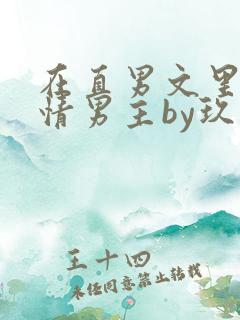 在直男文里
情男主by玖
王十四
未经同意禁止转载